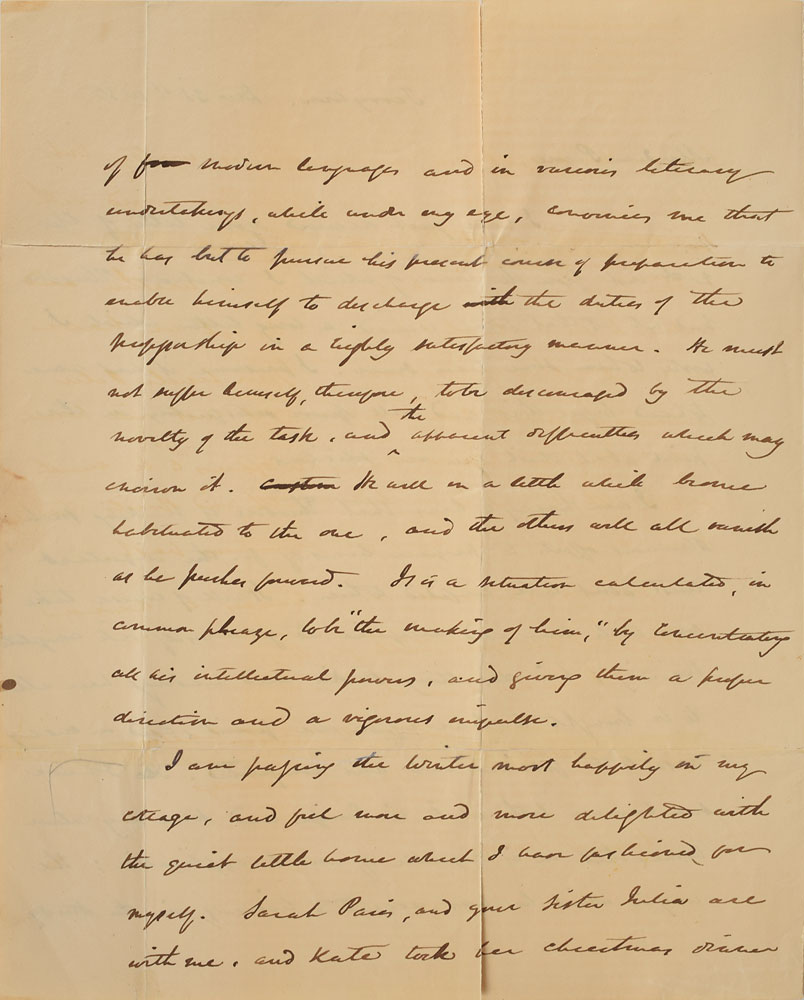 of ~~for~~ modern languages and in various literary
undertakings, while under my eye, convinces me that
he has but to pursue his present course of preparation to
enable himself to discharge ~~with~~ the duties of the
professorship in a highly satisfactory manner. He must
not suffer himself, therefore, to be discouraged by the
novelty of the task, and the apparent difficulties which may
environ it. ~~Custom~~ He will in a little while become
habituated to the one, and the others will all vanish
as he pushes forward. It is a situation calculated, in
common phraze, to be "the making of him," by concentrating
all his intellectual powers, and giving them a proper
direction and a vigorous impulse.
I am passing the winter most happily in my
cottage, and feel more and more delighted with
the quiet little home which I have fashioned for
myself. Sarah Paris, and your sister Julia are
with me, and Kate took her christmas dinner